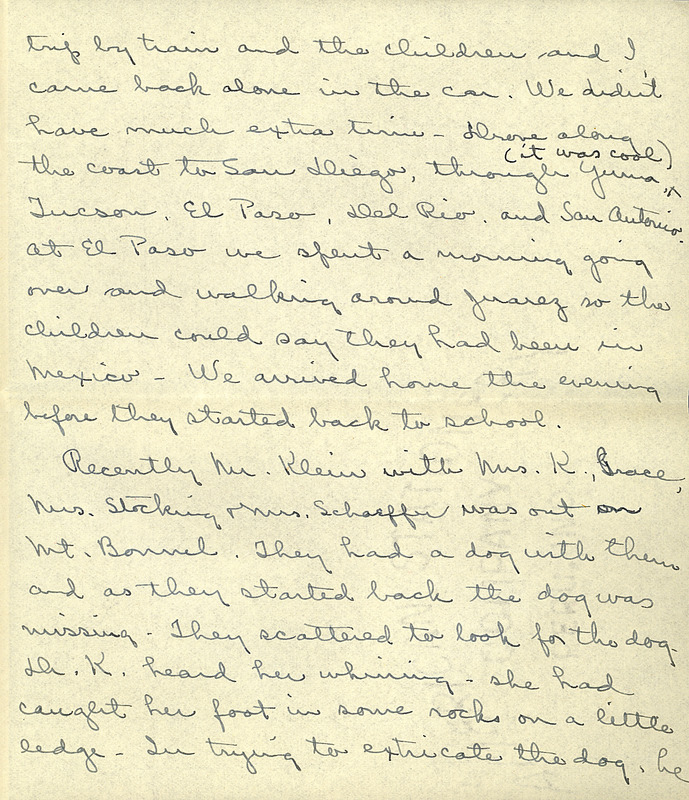 trip by train and the children and I,
came back alone in the car. We didn't
have much extra time - Drove along
the coast to San Diego, through Yuma, (it was cool)
Tucson, El Paso, Del Rio, and San Antonio.
At El Paso we spent a morning going
over and walking around Juarez so the
children could say they had been in
Mexico - We arrived home the evening
before they started back to school.
Recently Mr. Klein with Mrs. K., Grace,
Mrs. Stocking & Mrs. Schaeffer was out on
Mt. Bonnel. They had a dog with them
and as they started back the dog was
missing - They scattered to look for the dog -
Dr. K. heard her whining - she had
caught her foot in some rocks on a little
ledge - In trying to extricate the dog, he